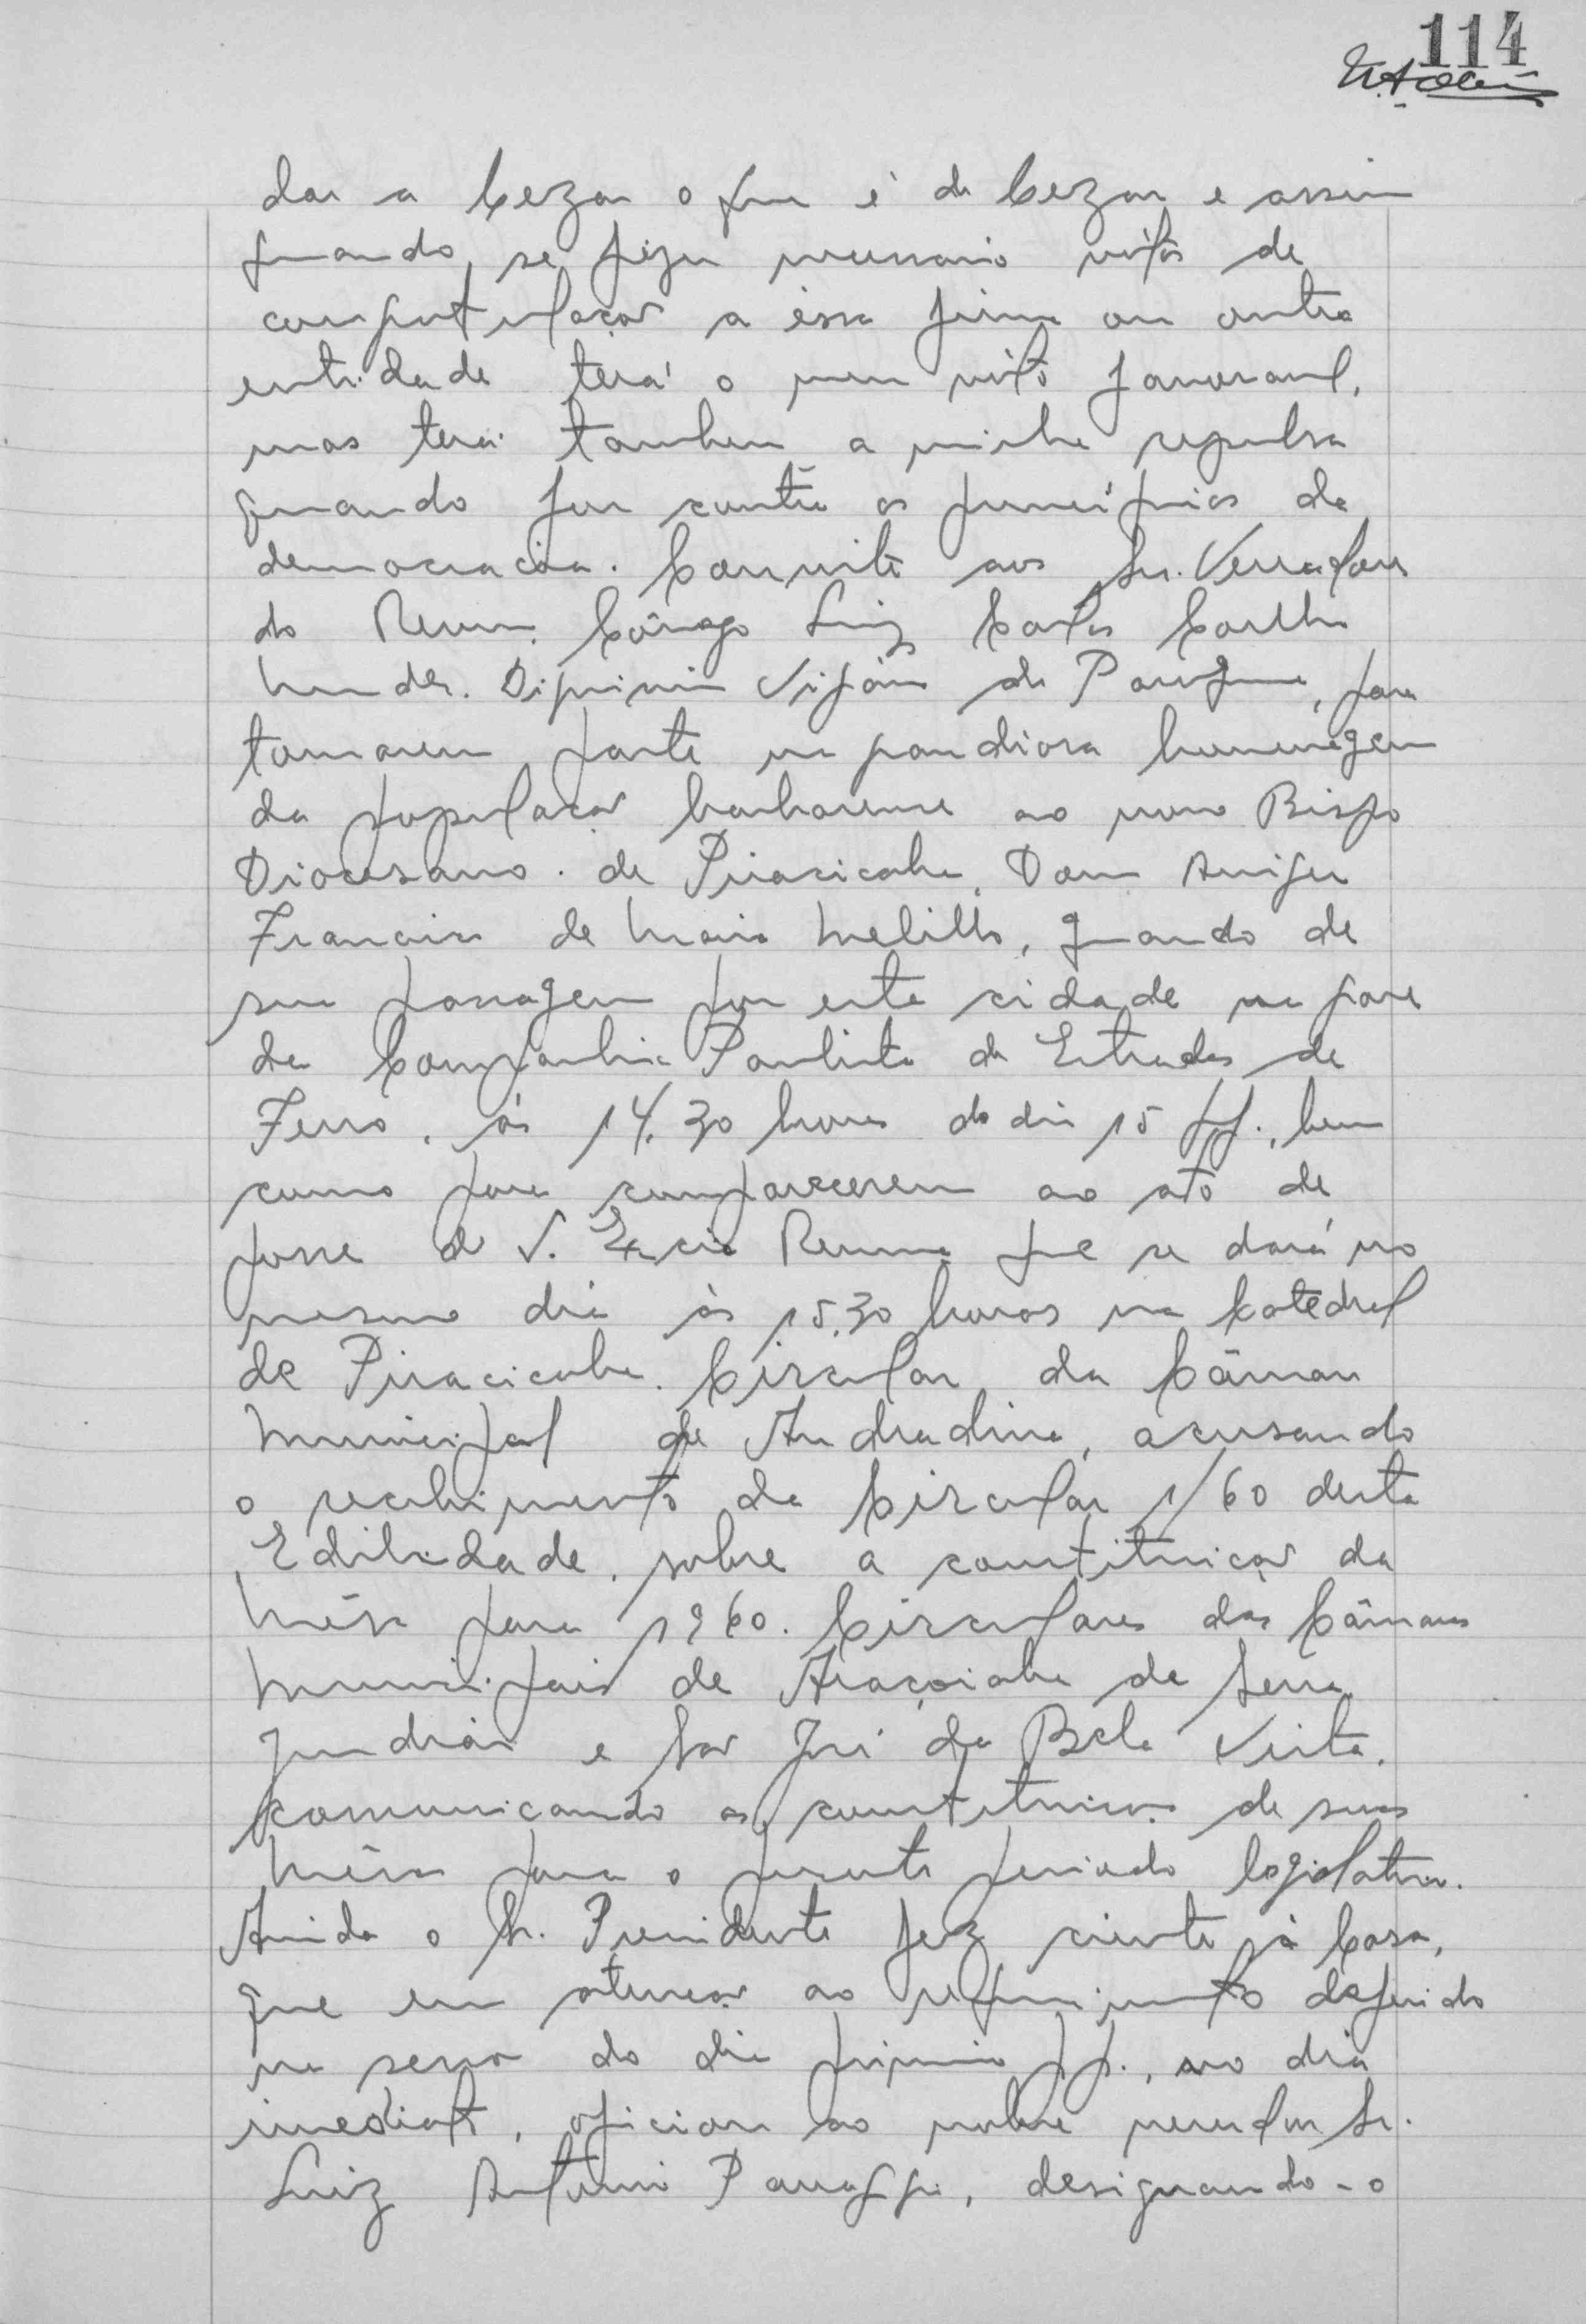 114
dar a Cezar o que é de Cezar e assim
quando se fizer necessario votos de
congratulação a éssa firma ou outra
entidade terá o meu voto favoravel,
mas terá tambem a minha repulsa
quando for contra os principios da
democracia. Convite aos Srs. Vereadores
do Revmo. Cônego Luiz Carlos Coelho
Mendes. Digníssimo Vigário da Paroquia, para
tomarem parte na grandiosa homenagem
da população barbarense ao novo Bispo
Diocesano. de Piracicaba, Dom Aniger
Francisco de Maria Melillo, quando de
sua passagem por esta cidade na gare
da Companhia Paulista de Estradas de
Ferro, ás 14,30 horas do dia 15 pf., bem
como para comparecerem ao ato de
posse de S. Excia Revma que se dará no
mesmo dia ás 15,30 horas na Catedral
de Piracicaba. Circular da Câmara
Municipal de Andradina, acusando
o recebimento da Circular 1/60 desta
Edilidade, sobre a constituição da
Mêsa para 1960. Circulares das Câmaras
Municipais de Araçoiaba da Serra,
Jundiaí e São José da Bela Vista,
comunicando as constituições de suas
Mêsas para o presente periodo legislativo.
Ainda o Sr. Presidente fez ciente á Casa,
que em atenção ao requerimento deferido
na sessão do dia primeiro pp., no dia
imediato, oficiou ao nobre vereador Sr.
Luiz Antonio Panaggi, designando-o